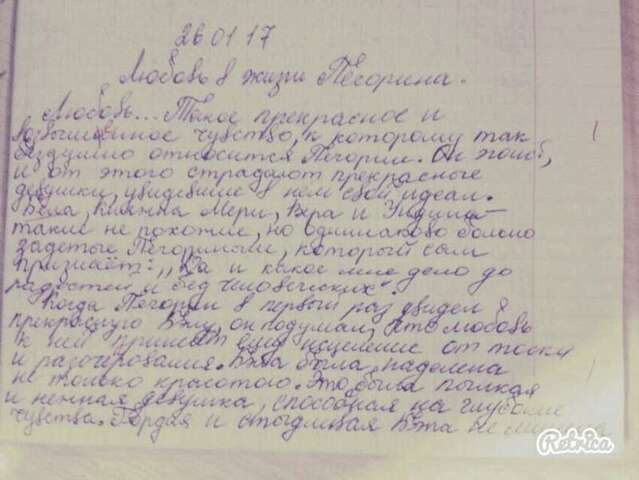 26 01 17
Любовь в жизни Печорина.
Любовь... Такое прекрасное и
возвышенное чувство, к которому так
бездумно относится Печорин. Он эгоист,
и от этого страдают прекрасные
девушки, увидевшие в нем свой идеал.
Бэла, Княжна Мери, Вера и Ундина
такие не похожие, но одинаково больно
задетые Печориным, который сам
признаёт: „Да и какое мне дело до
радостей и бед человеческих"
Когда Печорин в первый раз увидел
прекрасную Бэлу, он подумал, что любовь
к ней принесёт ему исцеление от тоски
и разочарования. Бэла была наделена
не только красотою. Это была пылкая
и нежная девушка, способная на глубокие
чувства. Гордая и стыдливая Бэла не
Retrica